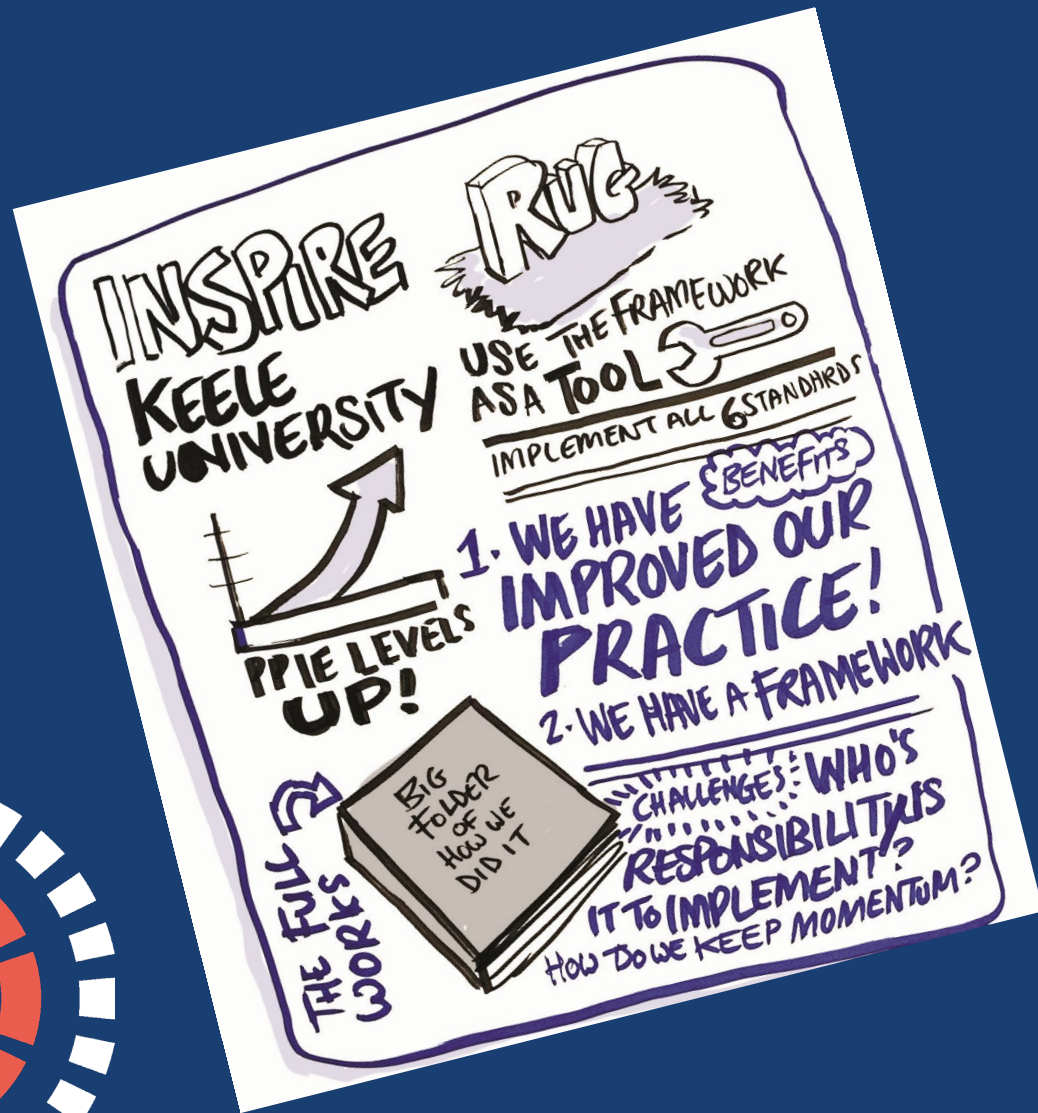 INSPIRE
KEELE
UNIVERSITY
PPIE LEVELS
UP!
RUG
USE THE FRAMEWORK
AS A TOOL
IMPLEMENT ALL 6 STANDARDS
BENEFITS
1. WE HAVE
IMPROVED OUR
PRACTICE!
2. WE HAVE A FRAMEWORK
THE FULL
WORKS
BIG
FOLDER
OF
HOW WE
DID IT
CHALLENGES: WHO'S
RESPONSIBILITY IS
IT TO IMPLEMENT?
HOW DO WE KEEP MOMENTUM?